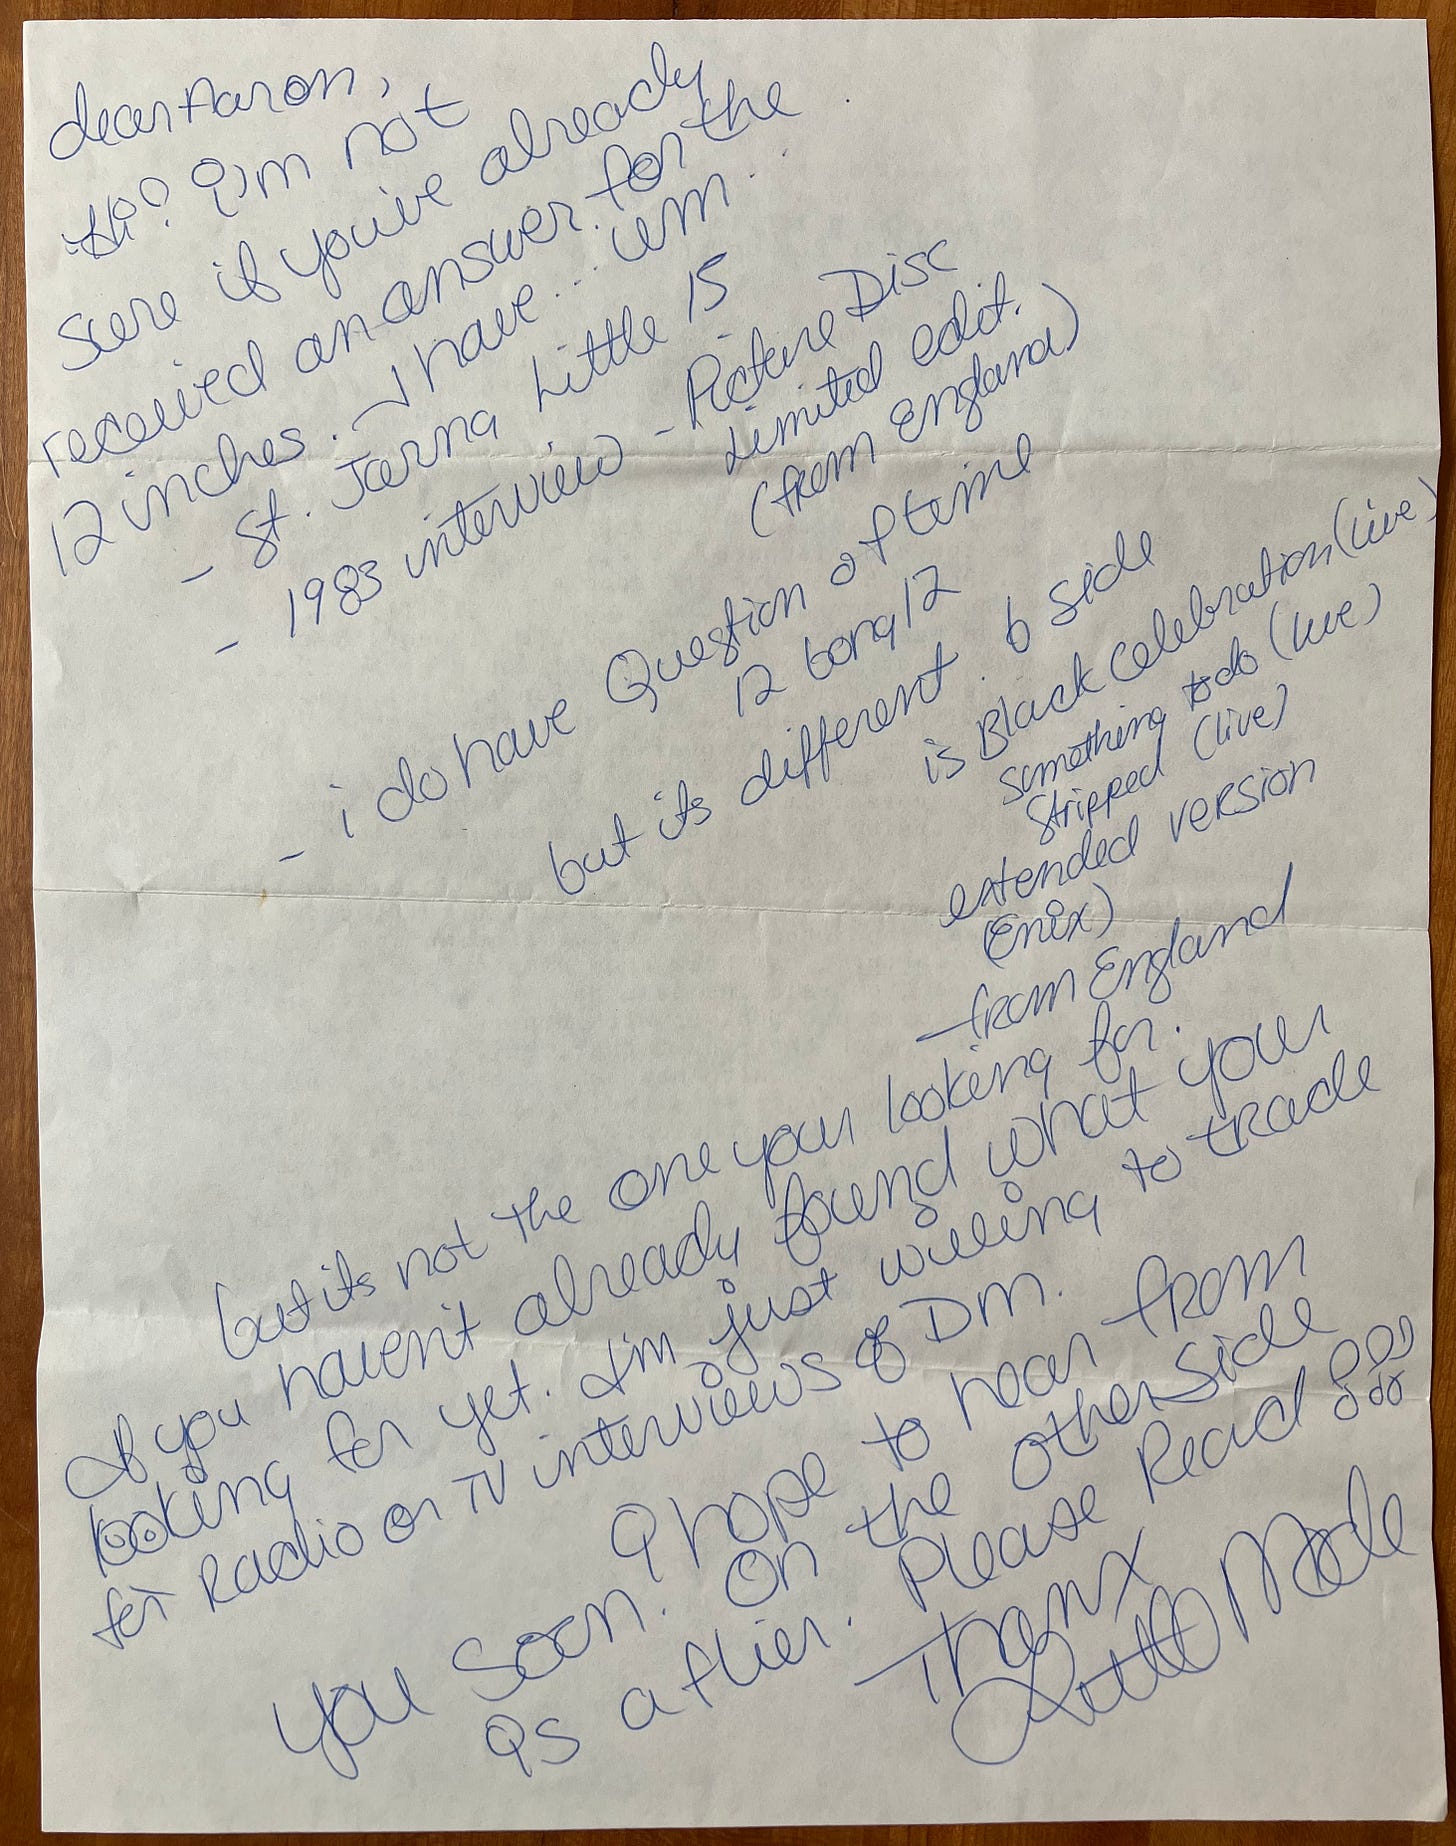 dear Aaron,
Hi! I'm not
sure if you've already
received an answer for the
12 inches. I have.. um..
- St. Jarna Little 15
- 1983 interview - Picture Disc
Limited edit.
(from England)
- i do have Question of time
12 bong 12
but its different. b side
is Black Celebration (live)
Something to do (live)
Stripped (live)
extended version
- from England
but its not the one your looking for.
If you haven't already found what your
looking for yet. I'm just willing to trade
for Radio or TV interviews of DM.
I hope to hear from
you soon. On the other side
is a flier. Please Read !!!
Thanx
Little Mode